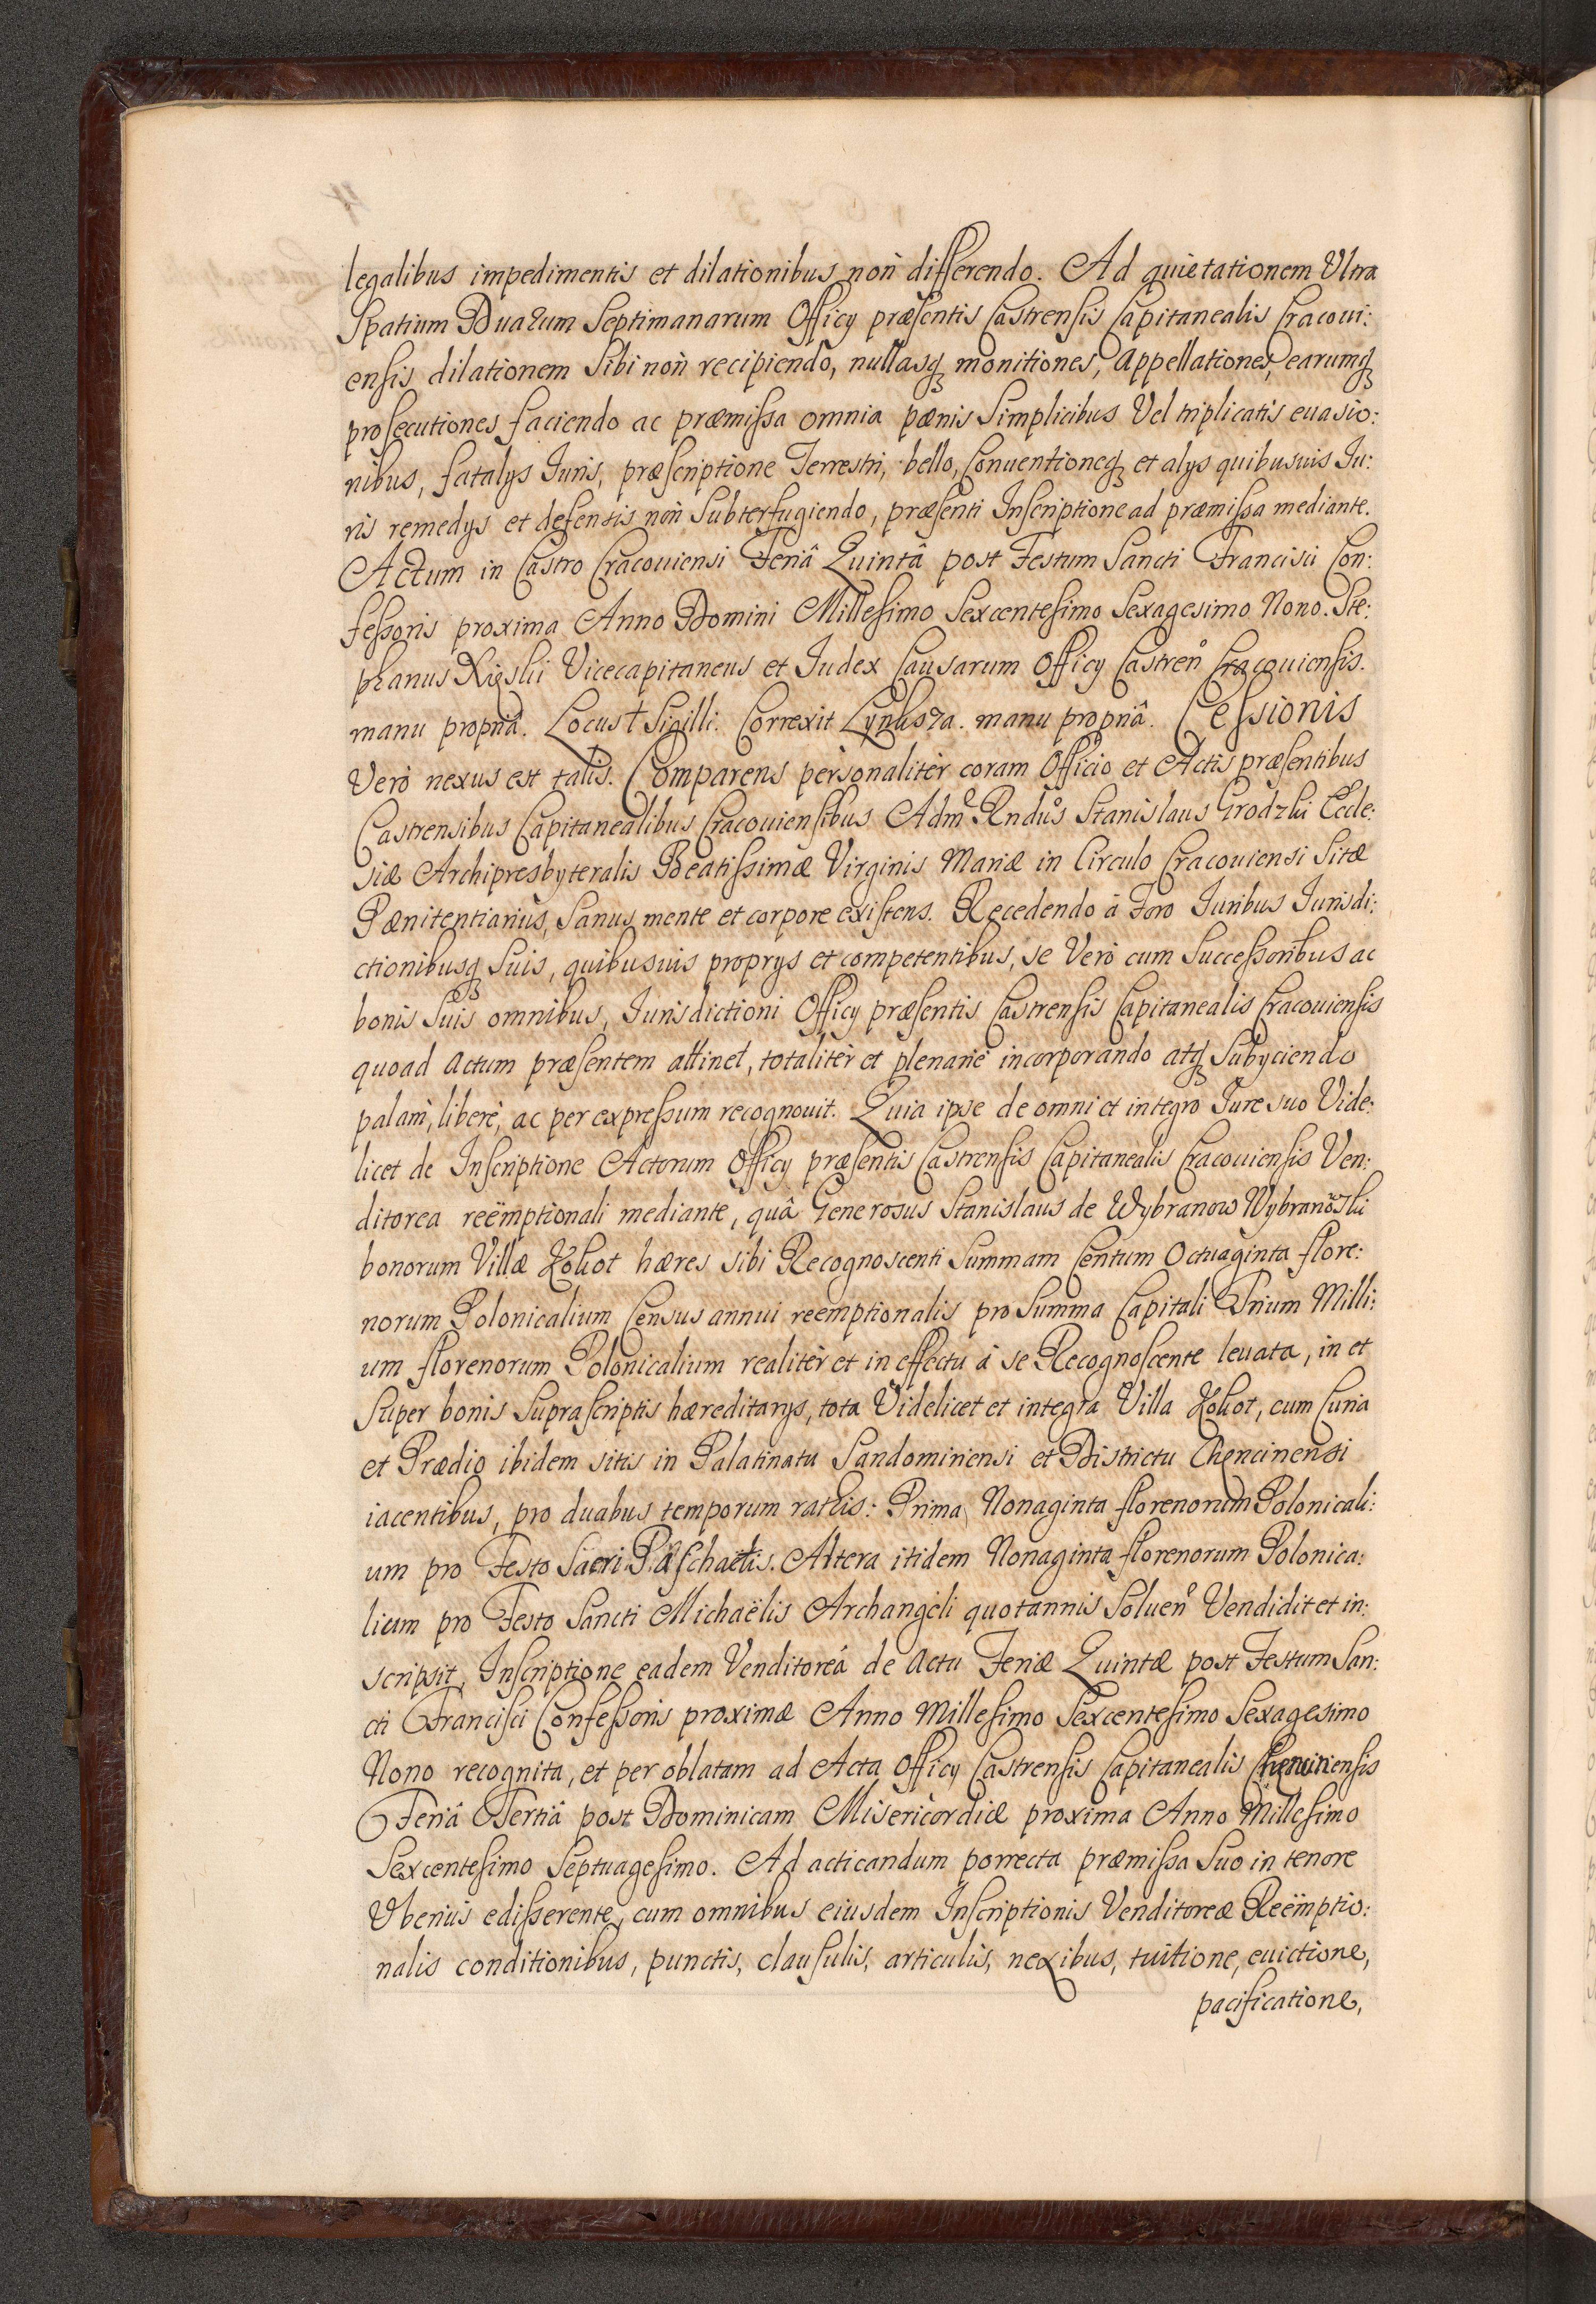 legalibus impedimentis et dilationibus non differendo. Ad quietationem Ultra
Spatium Duarum Septimanarum Officy præsentis Castrensis Capitanealis Cracoui:
ensis dilationem Sibi non recipiendo, nullasq; monitiones, Appellationes, earumq;
prosecutiones faciendo ac præmissa omnia pænis Simplicibus Vel triplicatis euasio:
nibus, fatalys Iuris, præscriptione Terrestri, bello, Conuentioneq; et alys quibusuis Iu:
ris remedys et defensis non Subterfugiendo, præsenti Inscriptione ad præmissa mediante.
Actum in Castro Cracouiensi Feriâ Quintâ post Festum Sancti Francisci Con:
fessoris proxima Anno Domini Millesimo Sexcentesimo Sexagesimo Nono. Ste:
phanus Vicecapitaneus et Iudex Causarum Officy Castren Cracouiensis.
manu propriâ. Locus † Sigilli. Correxit manu propriâ. Cessionis
Verò nexus est talis. Comparens personalitèr coram Officio et Actis præsentibus
Castrensibus Capitanealibus Cracouiensibus Adm Rndus Stanislaus Grodzki Eccle:
siæ Archipresbyteralis Beatissimæ Virginis Mariæ in Circulo Cracouiensi Sitæ
Pænitentiarius, Sanus mente et corpore existens. Recedendo à Foro Iuribus Iurisdi:
ctionibusq; Suis, quibusuis proprys et competentibus, se Verò cum Successoribus ac
bonis Suis omnibus, Iurisdictioni Officy præsentis Castrensis Capitanealis Cracouiensis
quoad Actum præsentem attinet, totalitèr et plenariè incorporando atq; Subyciendo
palàm, liberè, ac per expressum recognouit. Quia ipse de omni et integro Iure suo Vide:
licet de Inscriptione Actorum Officy præsentis Castrensis Capitanealis Cracouiensis Ven:
ditorea reëmptionali mediante, quâ Generosus Stanislaus de Wybranow Wybranowski
bonorum Villæ Kokot hæres sibi Recognoscenti Summam Centum Octuaginta flore:
norum Polonicalium Census annui reemptionalis pro Summa Capitali Trium Milli:
um florenorum Polonicalium realitèr et in effectu à se Recognoscente leuata, in et
Super bonis Suprascriptis hæreditarys, tota Videlicet et integra Villa Kokot, cum Curia
et Prædio ibidem sitis in Palatinatu Sandomiriensi et Districtu Chencinensi
iacentibus, pro duabus temporum rathis: Prima Nonaginta florenorum Polonicali:
um pro Festo Sacri Paschatis. Altera itidem Nonaginta florenorum Polonica:
lium pro Festo Sancti Michaëlis Archangeli quotannis Soluen Vendidit et in:
scripsit, Inscriptione eadem Venditoreâ de Actu Feriæ Quintæ post Festum San:
cti Francisci Confessoris proximæ Anno Millesimo Sexcentesimo Sexagesimo
Nono recognita, et per oblatam ad Acta Officy Castrensis Capitanealis
Feriâ Tertiâ post Dominicam Misericordiæ proxima Anno Millesimo
Sexcentesimo Septuagesimo. Ad acticandum porrecta præmissa Suo in tenore
Vberiùs edisserente, cum omnibus eiusdem Inscriptionis Venditoreæ Reëmptio:
nalis conditionibus, punctis, clausulis, articulis, nexibus, tuitione, euictione,
pacificatione,